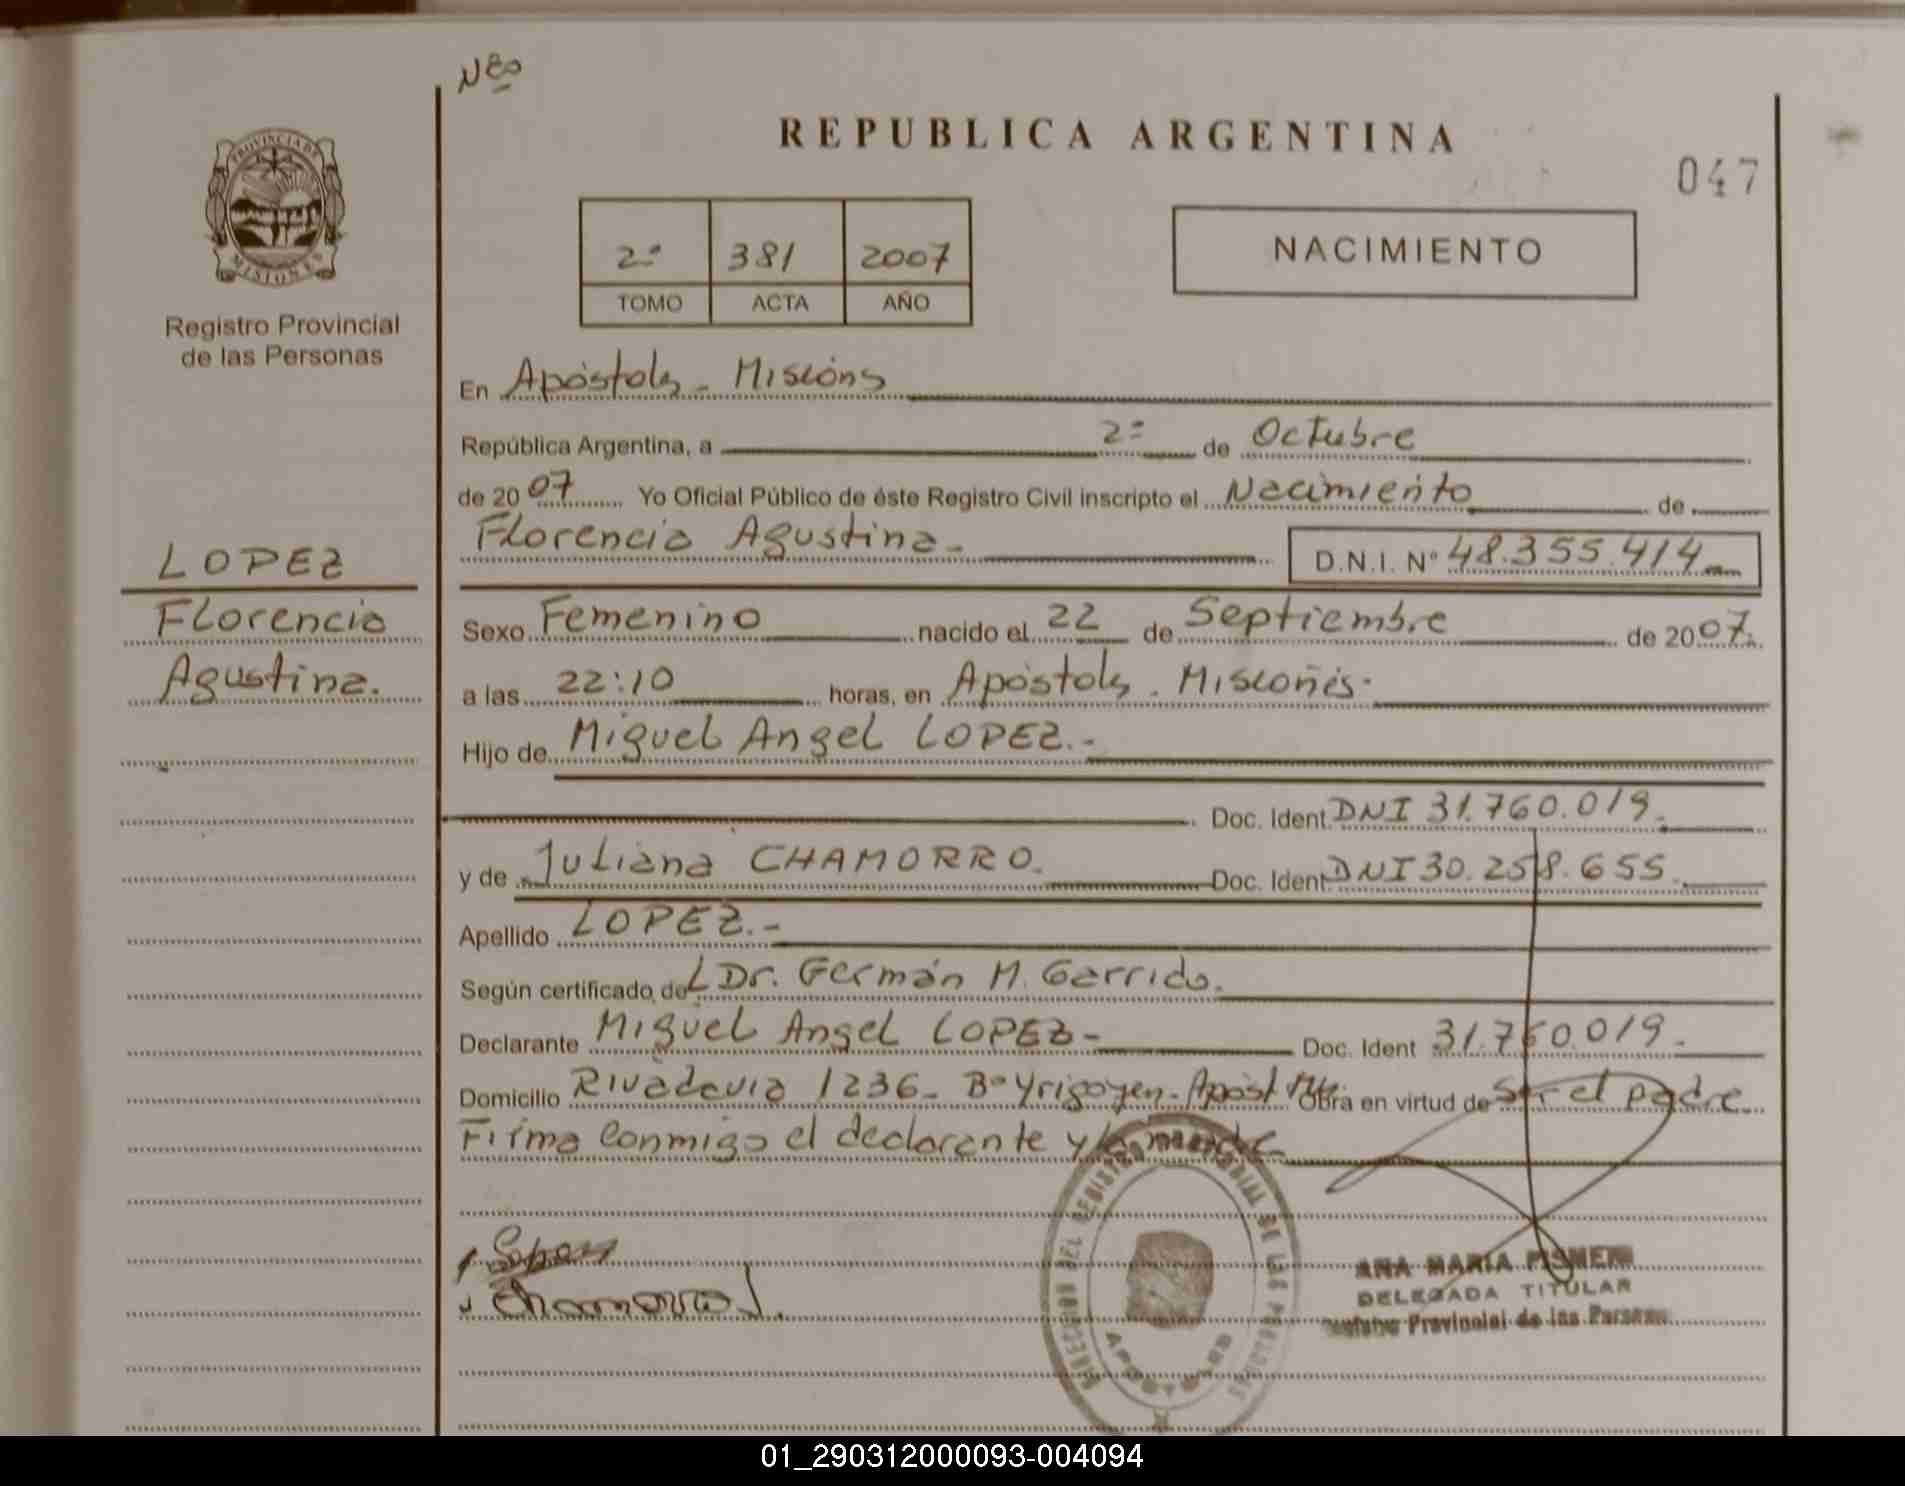 Nro
REPUBLICA ARGENTINA
047
PROVINCIA DE
MISIONES
Registro Provincial
de las Personas
2º 381 2007
TOMO ACTA AÑO
NACIMIENTO
En Apóstoles - Misiones
República Argentina, a 2º de Octubre
de 2007 Yo Oficial Público de éste Registro Civil inscripto el Nacimiento de
Florencia Agustina.- D.N.I. Nº 48.355.414
LOPEZ
Florencia
Agustina.
Sexo Femenino nacido el 22 de Septiembre de 2007.
a las 22:10 horas, en Apóstoles. Misiones.
Hijo de Miguel Angel LOPEZ.-
Doc. Ident DNI 31.760.019.
y de Juliana CHAMORRO. Doc. Ident DNI 30.258.655.
Apellido LOPEZ.-
Según certificado del Dr. Germán M. Garrido.
Declarante Miguel Angel LOPEZ- Doc. Ident 31.760.019.-
Domicilio Rivadavia 1236- Bº Yrigoyen- Apóst Mnes. Obra en virtud de ser el padre
Firma conmigo el declarante y la madre
Chamorro J.
ANA MARIA
DELEGADA TITULAR
Registro Provincial de las Personas
DIRECCION DEL REGISTRO PROVINCIAL DE LAS PERSONAS
APOSTOLES
01_290312000093-004094